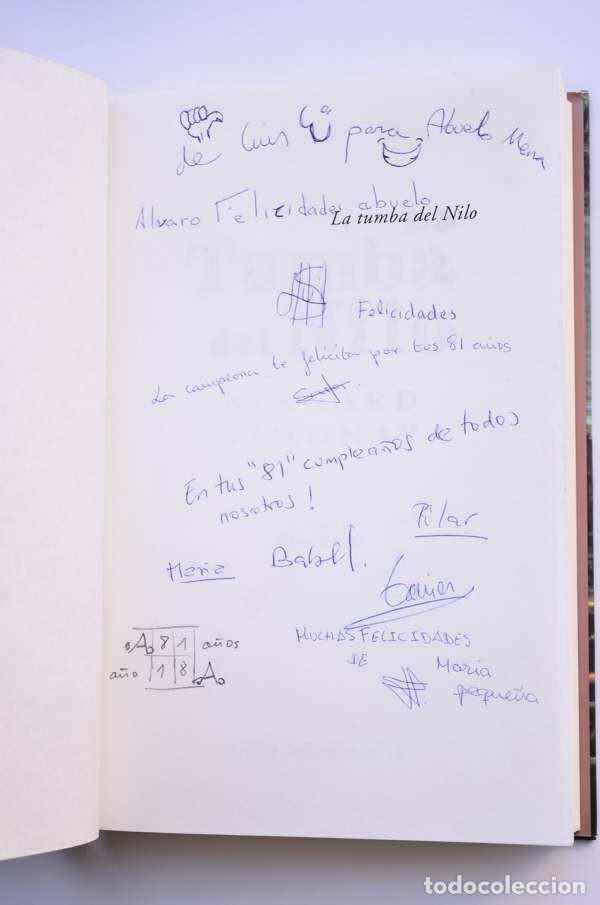 de Luis para Abuelo
Alvaro Felicidades abuelo
La tumba del Nilo
Felicidades
La campeona te felicita por tus 81 años
En tus "81" cumpleaños de todos
nosotros!
Pilar
Maria
Javier
MUCHAS FELICIDADES
DE
Maria
pequeña
A 8 1 años
año 1 8 A
todocoleccion
todocoleccion.net